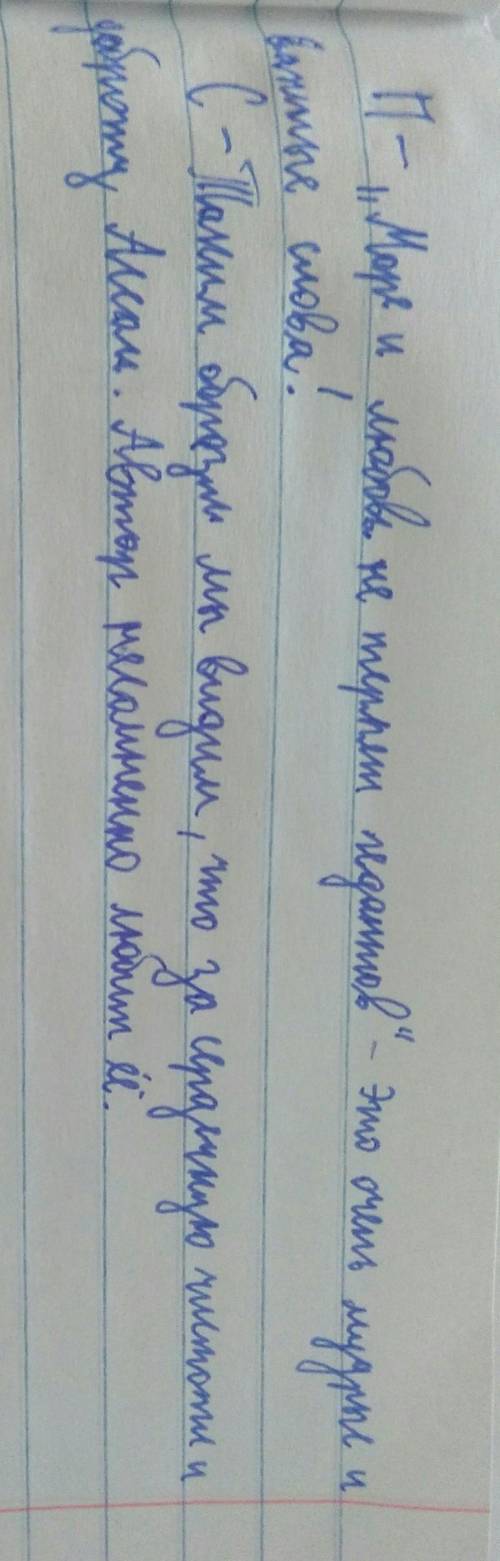 П - „Море и любовь не терпят педантов" - это очень мудрые и
важные слова!
С - Таким образом мы видим, что за сердечную чистоту и
доброту Ассоль. Автор несомненно любит её.